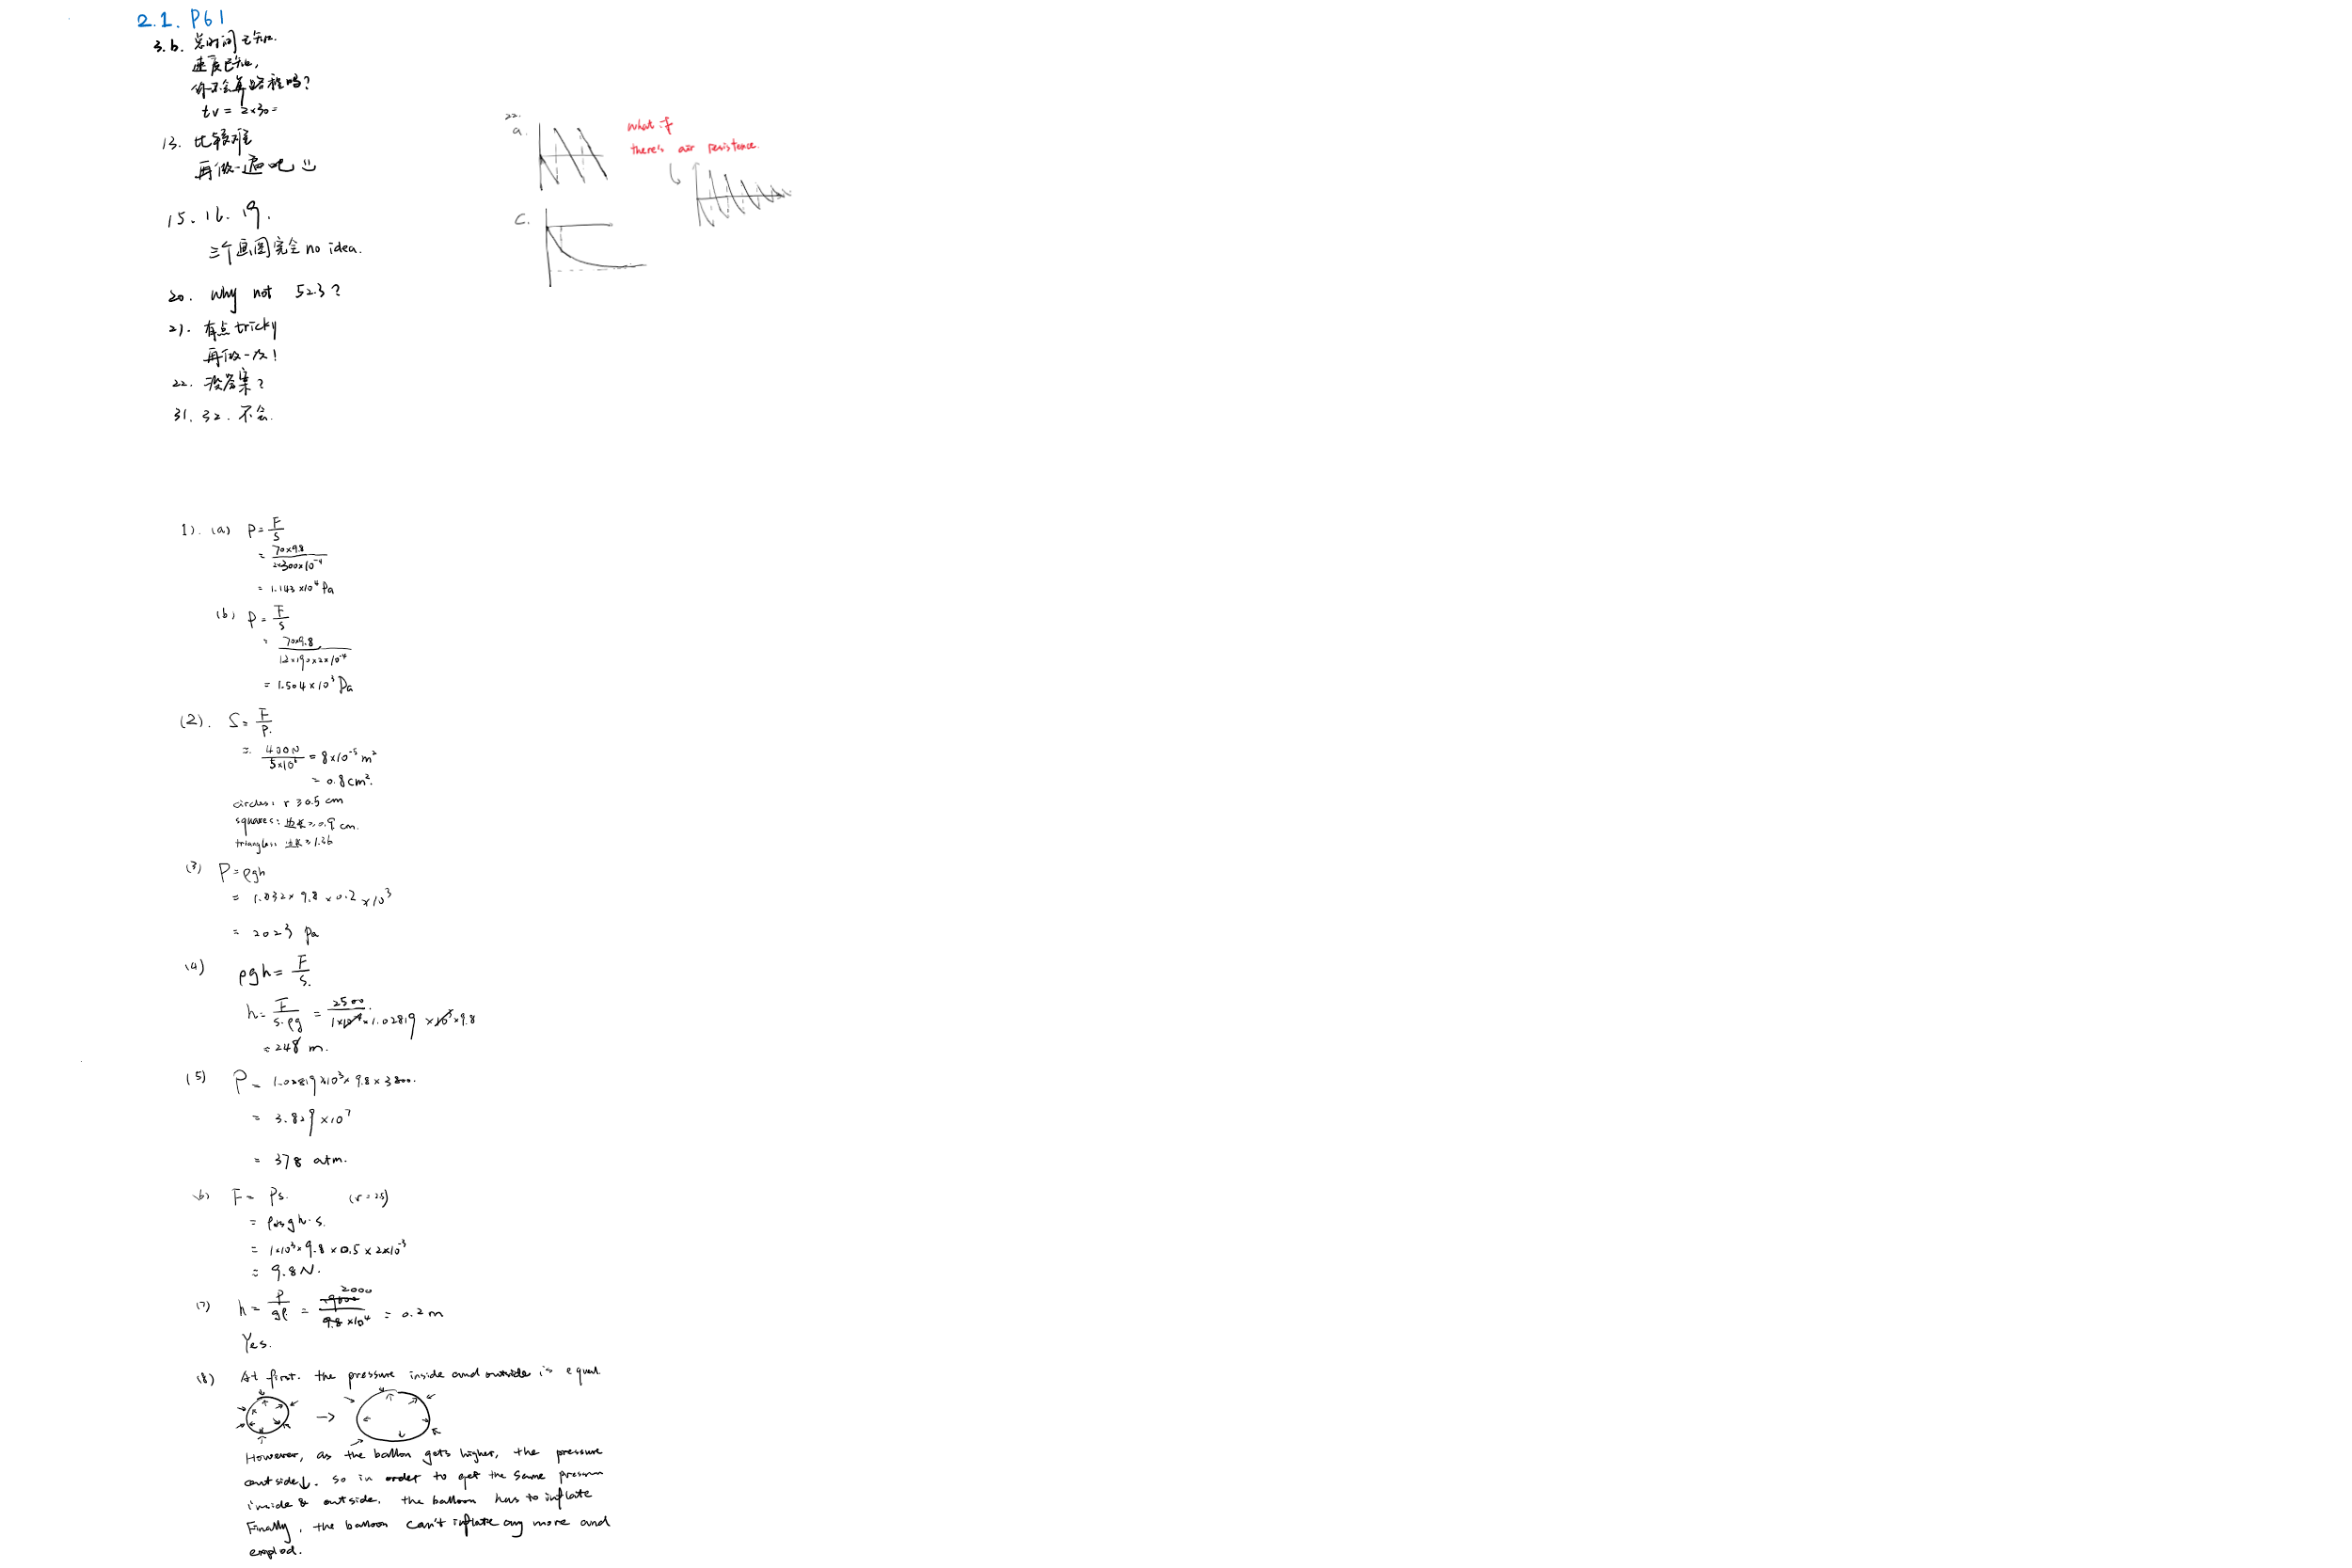 2.1. P61
3.b. 总时间已知.
速度已知,
你不会算路程吗?
tv = 2×30=
13. 比较难
再做一遍吧
15. 16. 19.
三个画图完全 no idea.
20. why not 52.3?
21. 有点 tricky
再做一次!
22. 没答案?
31. 32. 不会.
22.
a.
what if
there's air resistance.
C.
1). (a) P = F/S
= 70×9.8 / 2×300×10⁻⁴
= 1.143×10⁴ Pa
(b) P = F/S
= 70×9.8 / 12×190×2×10⁻⁴
= 1.504×10³ Pa
(2). S = F/P.
= 400N / 5×10⁶ = 8×10⁻⁵ m²
= 0.8cm².
circles: r ≥ 0.5 cm
squares: 边长 ≥ 0.9 cm.
triangles: 边长 ≥ 1.36
(3) P = ρgh
= 1.032 × 9.8 × 0.2 × 10³
= 2023 Pa
(4) ρgh = F/S.
h = F / S·ρg = 2500 / 1×10⁻⁴×1.02819 ×10³×9.8
= 248 m.
(5) P = 1.02819×10³× 9.8 × 3800.
= 3.829 ×10⁷
= 378 atm.
(6) F = Ps.
gh·s.
= 1×10³× 9.8 × 0.5 × 2×10⁻³
= 9.8N.
(7) h = P/gρ = 2000 / 9.8 ×10⁴ = 0.2 m
Yes.
(8) At first. the pressure inside and outside is equal
However, as the ballon gets higher, the pressure
outside↓. so in order to get the same
inside & outside. the balloon has to inflate
Finally, the balloon can't inflate any more and
explod.